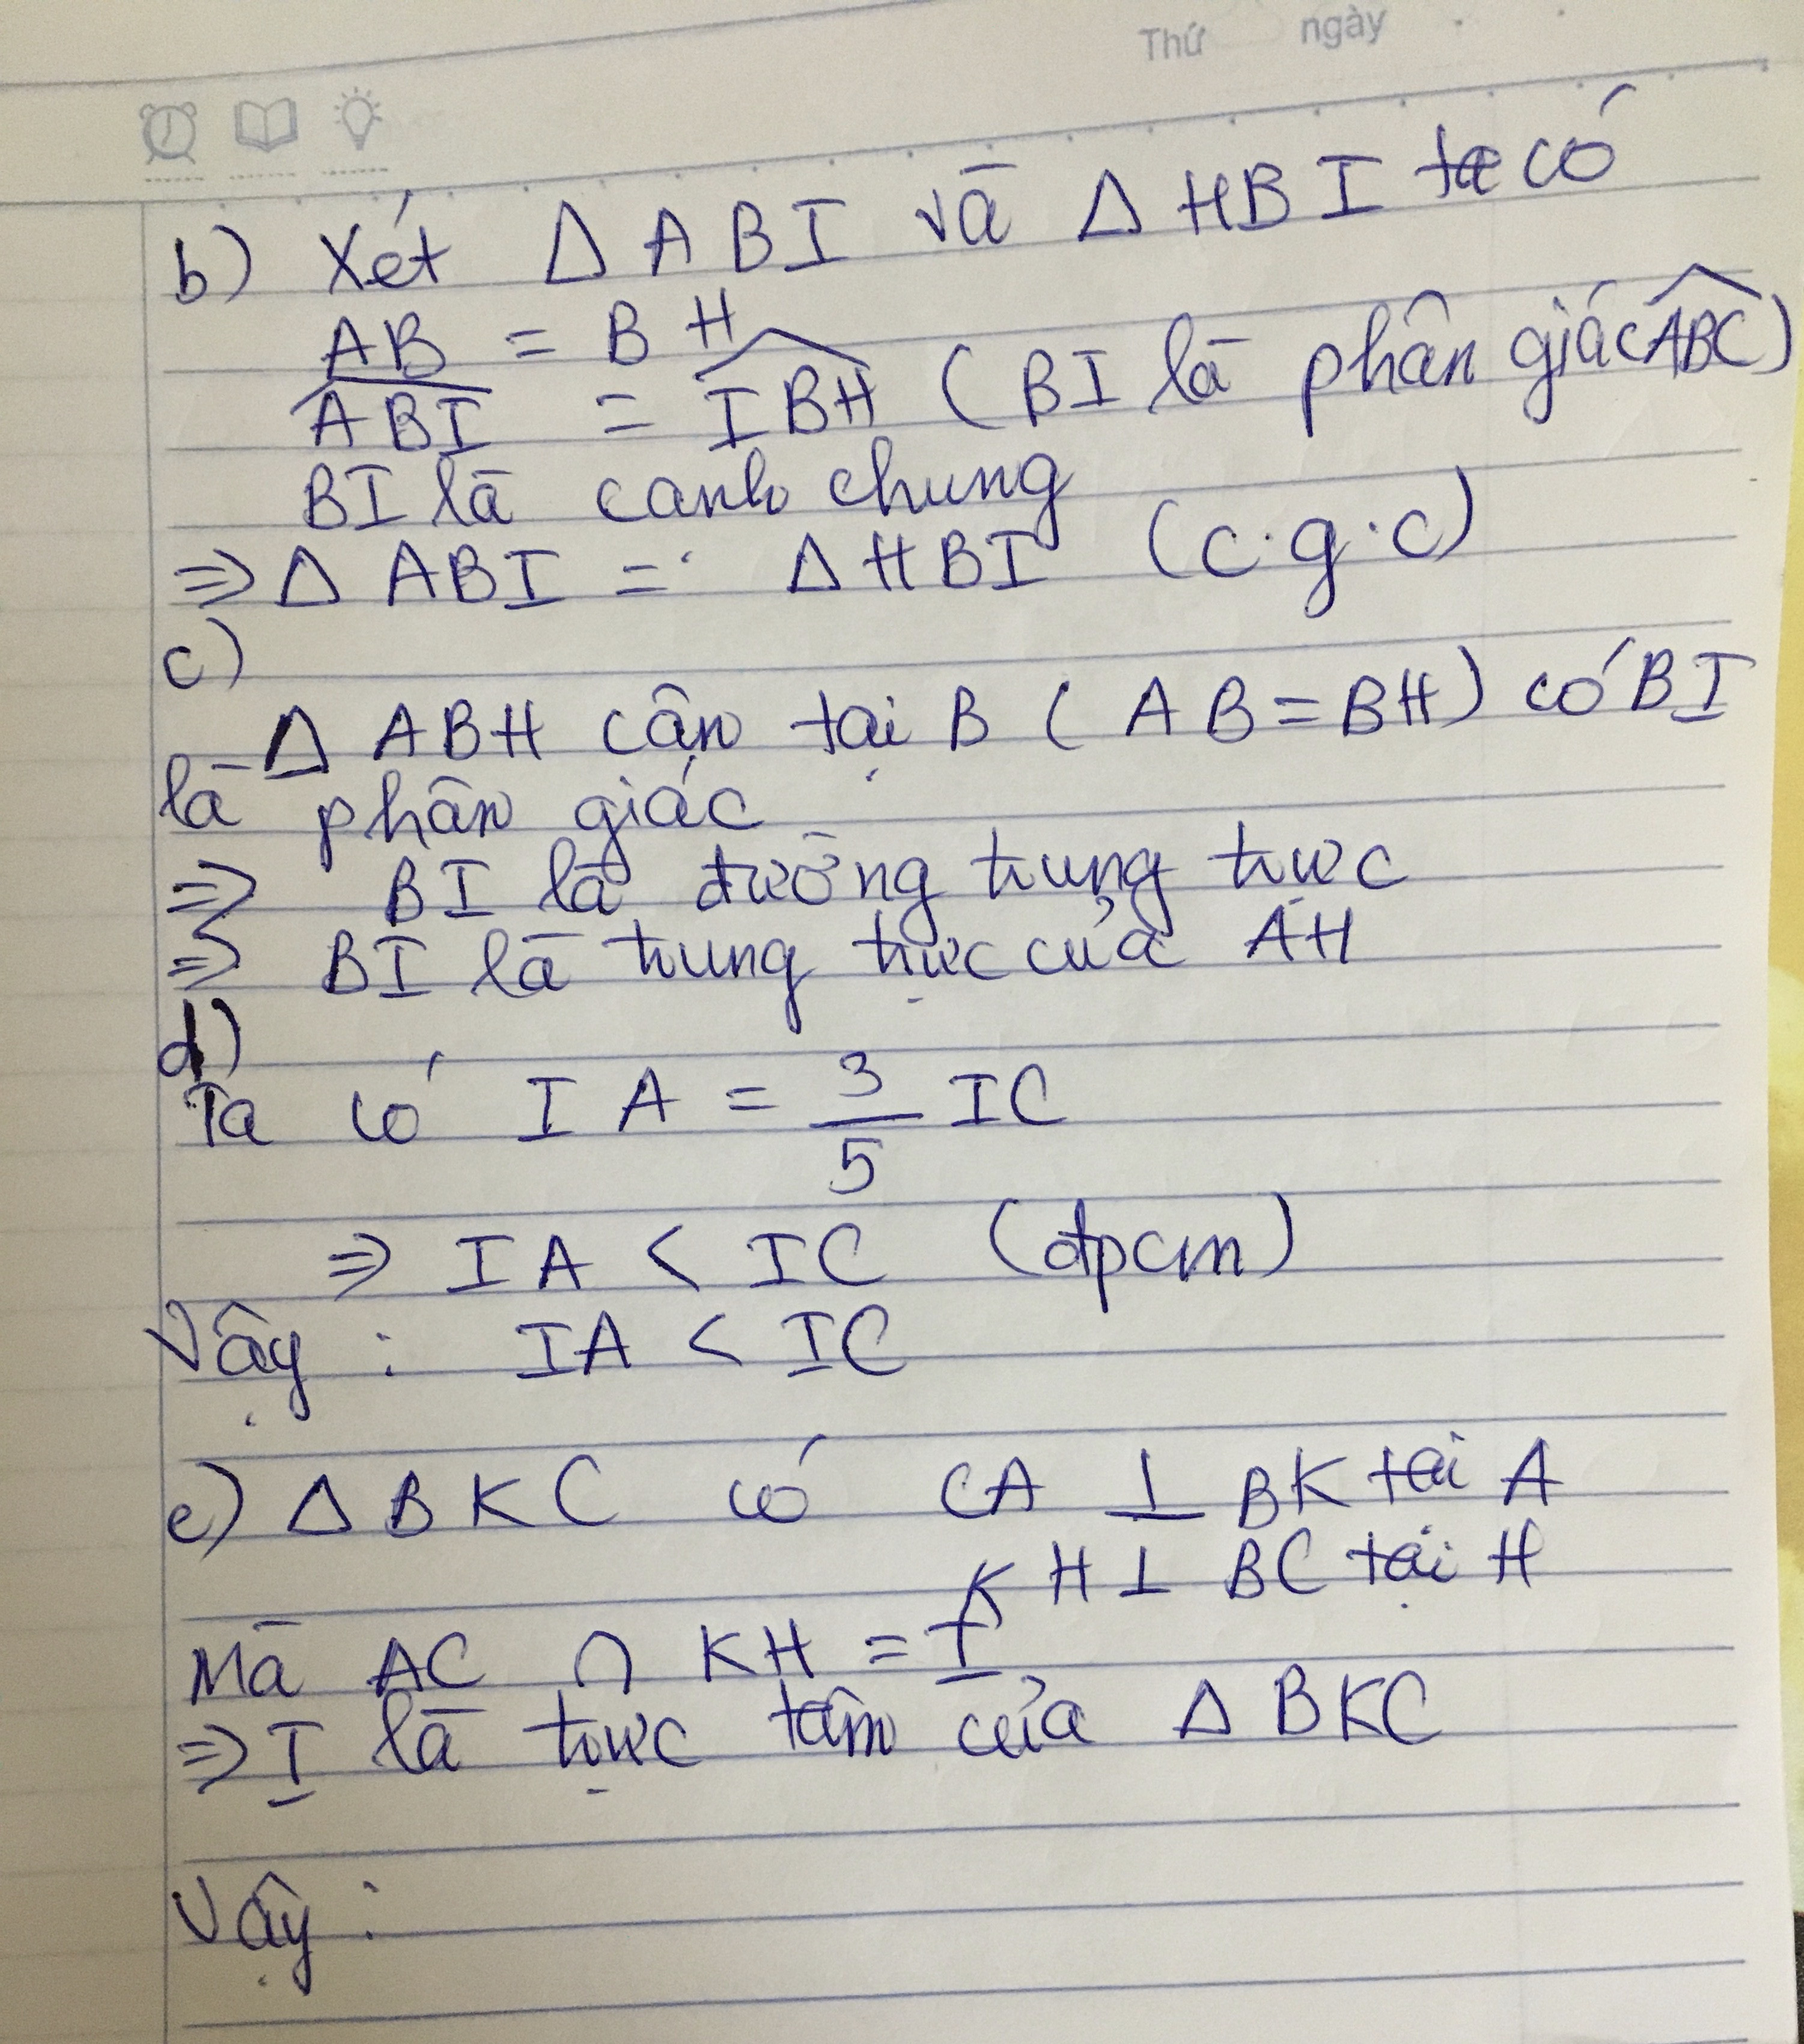 Thứ ngày
b) Xét Δ ABI và Δ HBI ta có
AB = BH
\widehat{ABI} = \widehat{IBH} (BI là phân giác \widehat{ABC})
BI là canh chung
⇒ Δ ABI = Δ HBI (c.g.c)
c)
Δ ABH cân tại B (AB = BH) có BI
là phân giác
⇒ BI là đường trung trực
⇒ BI là trung trực của AH
d)
Ta có IA = \frac{3}{5} IC
⇒ IA < IC (đpcm)
Vậy : IA < IC
e) Δ BKC có CA ⊥ BK tại A
KH ⊥ BC tại H
Mà AC ∩ KH = I
⇒ I là trực tâm của Δ BKC
Vậy :